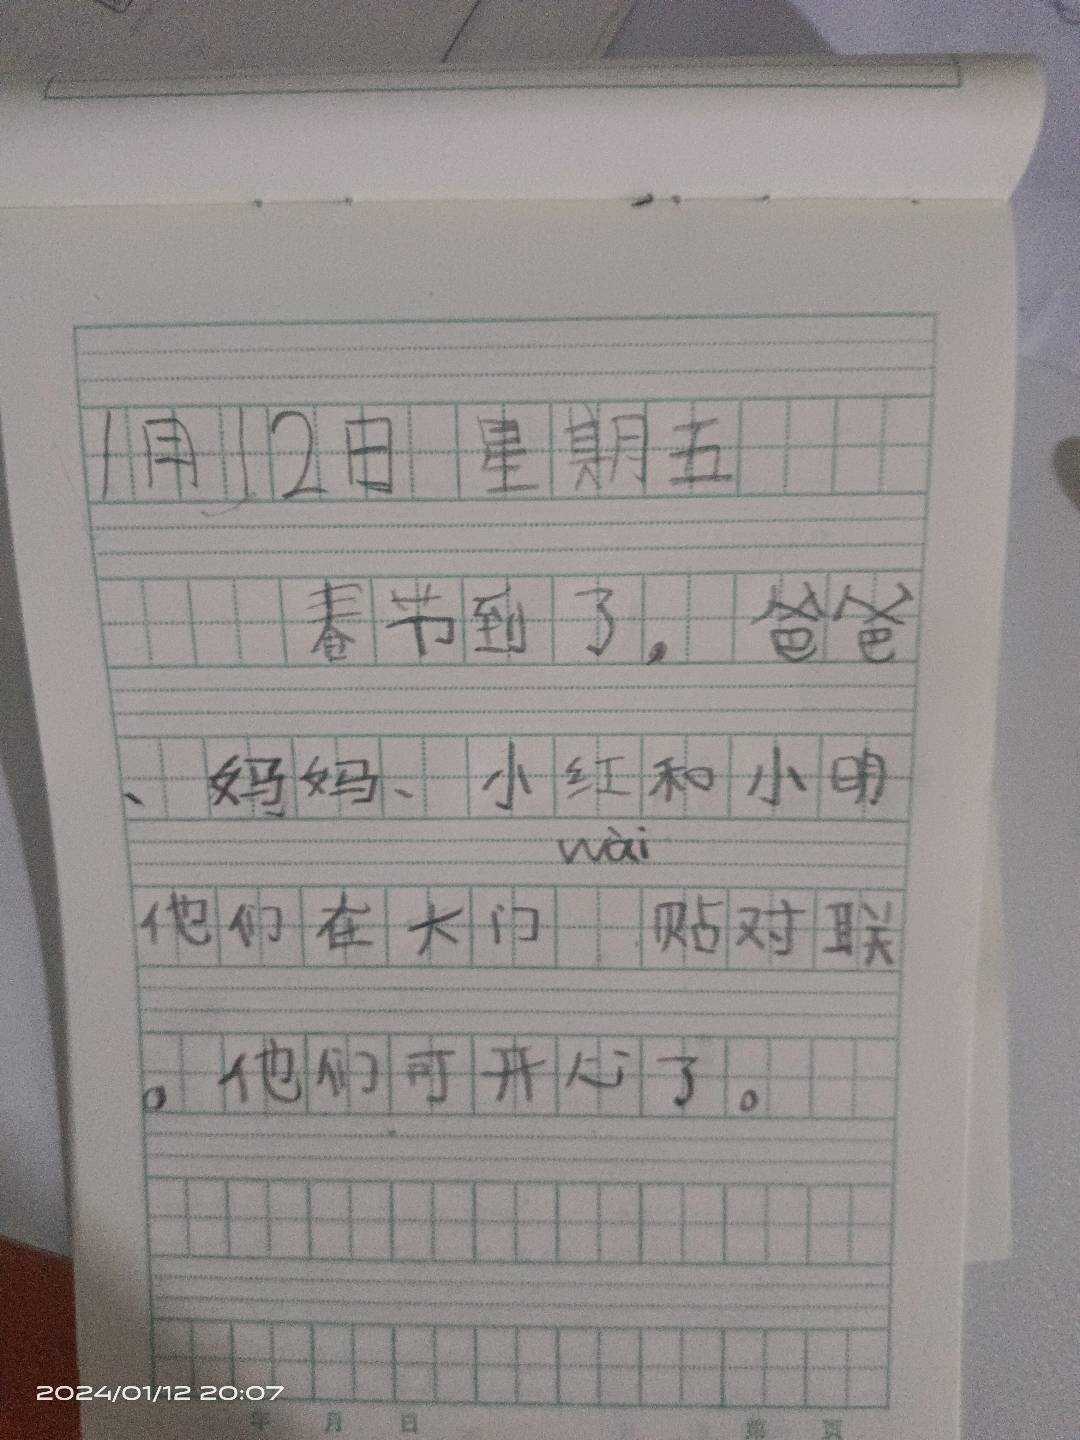 1月12日 星期五
春节到了，爸爸
、妈妈、小红和小明
wài
他们在大门 贴对联
。他们可开心了。
2024/01/12 20:07
年 月 日 第 页